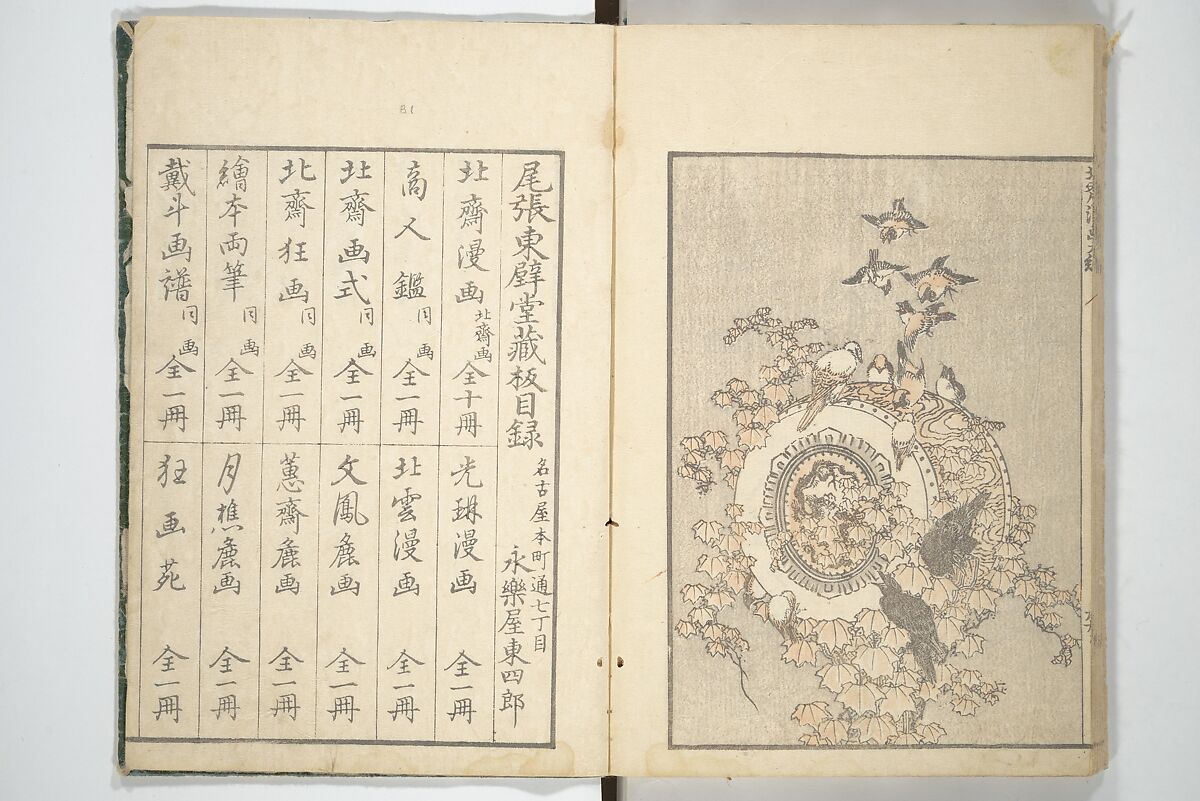 尾張東壁堂藏板目録
名古屋本町通七丁目
永樂屋東四郎
北齋漫画 北齋画 全十冊
光琳漫画 全一冊
商人鑑 同画 全一冊
北雲漫画 全一冊
北齋画式 同画 全一冊
文鳳麁画 全一冊
北齋狂画 同画 全一冊
蕙齋麁画 全一冊
繪本両筆 同画 全一冊
月樵麁画 全一冊
戴斗画譜 同画 全一冊
狂画苑 全一冊
81